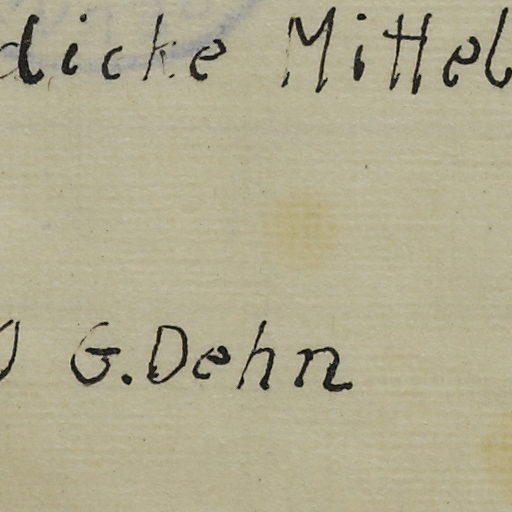 dicke Mittel
G. Dehn